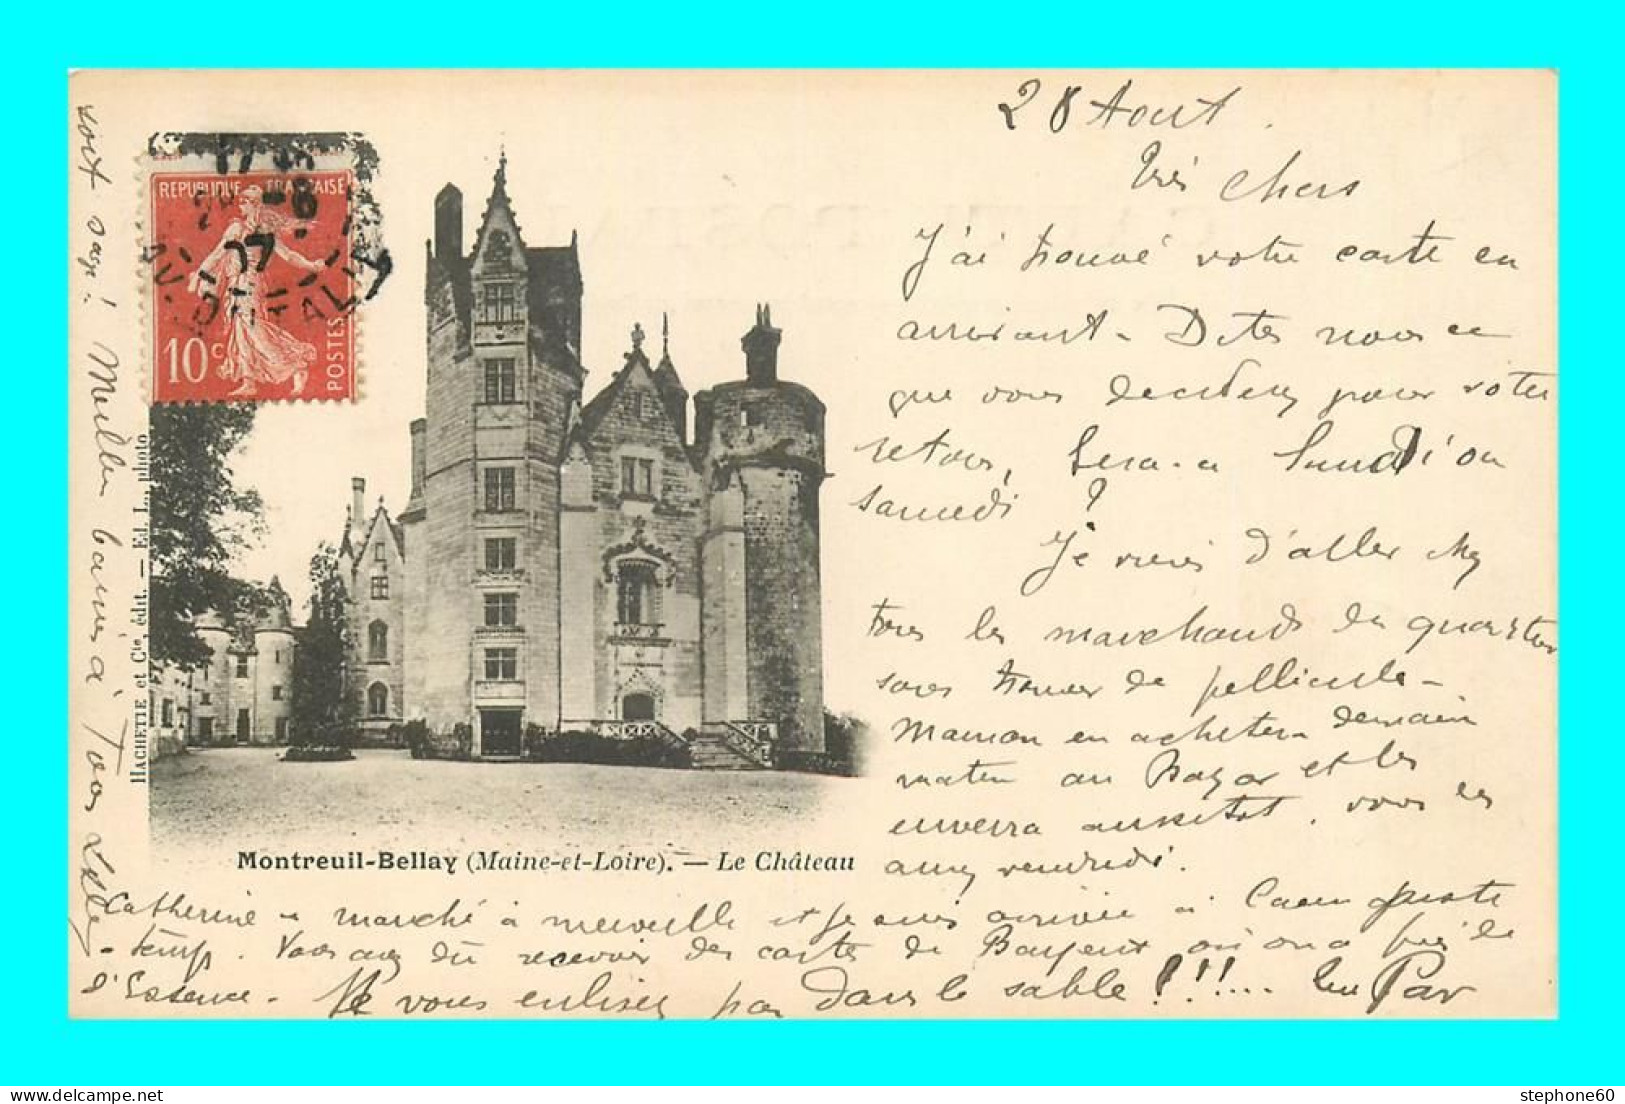 28 Aout.
Très Chers
J'ai trouvé votre carte en
arrivant - Dites nous ce
que vous decidez pour votre
retour, Sera-ce Lundi ou
samedi ?
Je viens d'aller chez
tous les marchands du quartier
sans trouver de pellicule -
Maman en achetera demain
matin au Bazar et les
enverra aussitot. vous les
aurez vendredi.
Catherine a marché à merveille et je suis arrivée à Caen juste
temps. Vous avez dû recevoir des cartes de où on a pris de
d'Essence. - Ne vous enlisez pas dans le sable !!!!...
soit sage ! Meilleurs baisers à Tous
REPUBLIQUE FRANÇAISE
10c
POSTES
17
-8
07
HACHETTE et Cie, édit. — Ed. L., photo
Montreuil-Bellay (Maine-et-Loire). — Le Château
stephone60